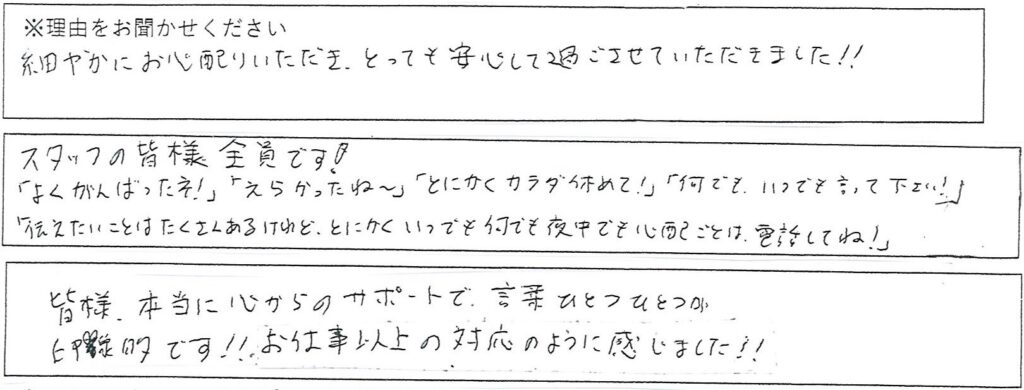 ※理由をお聞かせください
細やかにお心配りいただき、とっても安心して過ごさせていただきました!!
スタッフの皆様全員です!
「よくがんばったネ!」「えらかったね〜」「とにかくカラダ休めて!」「何でも、いつでも言って下さい!」
「伝えたいことはたくさんあるけれど、とにかくいつでも何でも夜中でも心配ごとは、電話してね!」
皆様、本当に心からのサポートで、言葉ひとつひとつが
印象的です!!お仕事以上の対応のように感じました!!